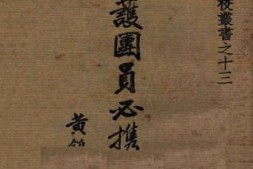 校叢書之十三
護團員必携
黃